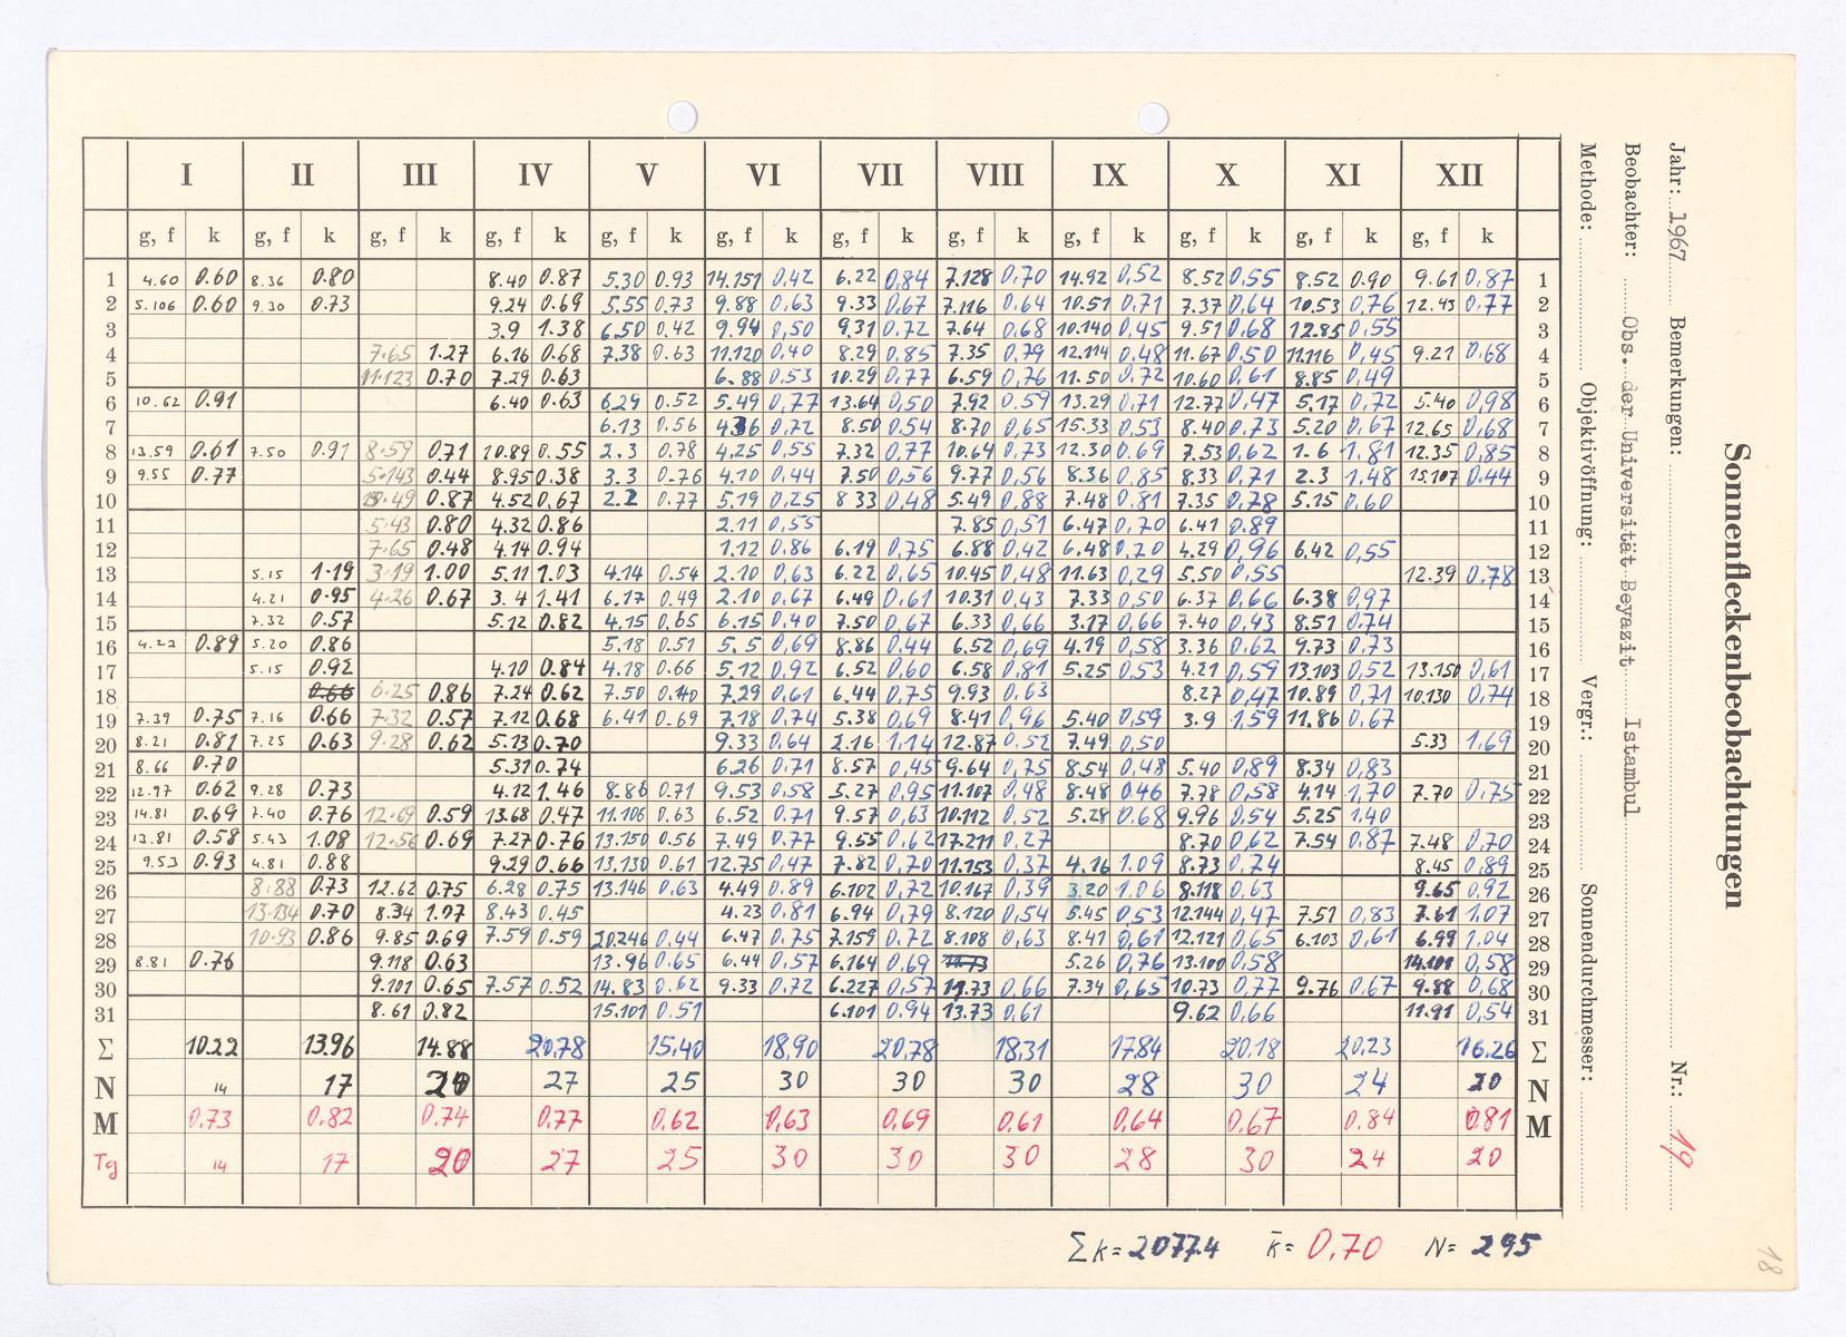 Sonnenfleckenbeobachtungen
Jahr: 1967 Bemerkungen: Nr.: 19
Beobachter: Obs. der Universität Beyazit Istambul
Methode: Objektivöffnung: Vergr.: Sonnendurchmesser:
I II III IV V VI VII VIII IX X XI XII
g, f k g, f k g, f k g, f k g, f k g, f k g, f k g, f k g, f k g, f k g, f k g, f k
1 4.60 0.60 8.36 0.80 8.40 0.87 5.30 0.93 14.151 0,42 6.22 0,84 7.128 0,70 14.92 0,52 8.52 0,55 8.52 0.90 9.61 0,87 1
2 5.106 0.60 9.30 0.73 9.24 0.69 5.55 0.73 9.88 0,63 9.33 0,67 7.116 0,64 10.51 0,71 7.37 0,64 10.53 0,76 12.43 0,77 2
3 3.9 1.38 6.50 0.42 9.94 0,50 9.31 0,72 7.64 0,68 10.140 0,45 9.51 0,68 12.85 0,55 3
4 7.65 1.27 6.16 0.68 7.38 0.63 11.120 0,40 8.29 0,85 7.35 0,79 12.114 0,48 11.67 0,50 11.116 0,45 9.21 0,68 4
5 11.123 0.70 7.29 0.63 6.88 0,53 10.29 0,77 6.59 0,76 11.50 0,72 10.60 0,61 8.85 0,49 5
6 10.62 0.91 6.40 0.63 6.29 0.52 5.49 0,77 13.64 0,50 7.92 0.59 13.29 0,71 12.77 0,47 5.17 0,72 5.40 0,98 6
7 6.13 0.56 4.36 0,72 8.50 0,54 8.70 0,65 15.33 0,53 8.40 0,73 5.20 0,67 12.65 0,68 7
8 13.59 0.61 7.50 0.91 8.59 0.71 10.89 0.55 2.3 0.78 4.25 0,55 7.32 0,77 10.64 0,73 12.30 0.69 7.53 0,62 1.6 1,81 12.35 0,85 8
9 9.55 0.77 5.143 0.44 8.95 0.38 3.3 0.76 4.10 0,44 7.50 0,56 9.77 0,56 8.36 0,85 8.33 0,71 2.3 1,48 15.107 0,44 9
10 0.87 4.52 0.67 2.2 0.77 5.19 0,25 8.33 0,48 5.49 0,88 7.48 0,81 7.35 0,78 5.15 0,60 10
11 5.43 0.80 4.32 0.86 2.11 0,55 7.85 0,51 6.47 0,70 6.41 0.89 11
12 7.65 0.48 4.14 0.94 1.12 0.86 6.19 0,75 6.88 0,42 6.48 0,70 4.29 0,96 6,42 0,55 12
13 5.15 1.19 3.19 1.00 5.11 1.03 4.14 0.54 2.10 0,63 6.22 0,65 10.45 0,48 11.63 0,29 5.50 0,55 12.39 0.78 13
14 4.21 0.95 4.26 0.67 3.4 1.41 6.17 0.49 2.10 0,67 6.49 0,61 10.31 0,43 7.33 0,50 6.37 0,66 6.38 0,97 14
15 7.32 0.57 5.12 0.82 4.15 0.65 6.15 0,40 7.50 0,67 6.33 0,66 3.17 0,66 7.40 0,43 8.51 0,74 15
16 0.89 5.20 0.86 5.18 0.51 5.5 0,69 8.86 0,44 6.52 0,69 4.19 0,58 3.36 0.62 9.73 0,73 16
17 5.15 0.92 4.10 0.84 4.18 0.66 5.12 0,92 6.52 0,60 6.58 0,81 5.25 0,53 4.21 0,59 13.103 0,52 13.150 0,61 17
18 0.66 6.25 0.86 7.24 0.62 7.50 0.40 7.29 0,61 6.44 0,75 9.93 0,63 8.27 0,47 10.89 0,71 10.130 0,74 18
19 7.39 0.75 7.16 0.66 7.32 0.57 7.12 0.68 6.41 0.69 7.18 0,74 5.38 0,69 8.41 0,96 5.40 0,59 3.9 1,59 11.86 0,67 19
20 8.21 0.81 7.25 0.63 9.28 0.62 5.13 0.70 9.33 0,64 2.16 1,14 12.87 0,52 7.49 0,50 5.33 1,69 20
21 8.66 0.70 5.31 0.74 6.26 0,71 8.57 0,45 9.64 0,75 8.54 0,48 5.40 0,89 8.34 0,83 21
22 12.97 0.62 9.28 0.73 4.12 1.46 8.86 0.71 9.53 0,58 5.27 0,95 11.107 0,48 8.48 0.46 7.78 0,58 4.14 1,70 7.70 0,75 22
23 14.81 0.69 7.40 0.76 12.69 0.59 13.68 0.47 11.106 0.63 6.52 0,71 9.57 0,63 10.112 0,52 5.28 0,68 9.96 0,54 5.25 1,40 23
24 0.58 5.43 1.08 12.56 0.69 7.27 0.76 13.150 0.56 7.49 0,77 9.55 0,62 17.211 0,27 8.70 0,62 7.54 0,87 7.48 0,70 24
25 9.53 0.93 4.81 0.88 9.29 0.66 13.130 0.61 12.75 0,47 7.82 0,70 11.153 0,37 4.16 1.09 8.73 0,74 8.45 0,89 25
26 8.88 0.73 12.62 0.75 6.28 0.75 13.146 0,63 4.49 0,89 6.102 0,72 10.167 0,39 3.20 1,06 8.118 0,63 9.65 0,92 26
27 13.134 0.70 8.34 1.07 8.43 0.45 4.23 0,81 6.94 0,79 8.120 0,54 5.45 0,53 12.144 0,47 7.51 0,83 7.61 1,07 27
28 10.93 0.86 9.85 0.69 7.59 0.59 20.246 0,44 6.47 0,75 7.159 0,72 8.108 0,63 8.41 0,61 12.121 0,65 6.103 0,61 6.99 1,04 28
29 8.81 0.76 9.118 0.63 13.96 0.65 6.44 0,57 6.164 0,69 11.73 5.26 0,76 13.100 0,58 14.101 0,58 29
30 9.101 0.65 7.57 0.52 14.83 0.62 9.33 0,72 6.227 0,57 11.73 0,66 7.34 0,65 10.73 0,77 9.76 0,67 9.88 0,68 30
31 8.61 0.82 15.101 0.51 6.101 0,94 13.73 0,61 9.62 0,66 11.91 0,54 31
Σ 10.22 13.96 14.88 20,78 15,40 18,90 20,78 18,31 17,84 20,18 20,23 16,26 Σ
N 14 17 20 27 25 30 30 30 28 30 24 20 N
M 0.73 0,82 0.74 0,77 0,62 0,63 0,69 0,61 0,64 0,67 0,84 0,81 M
Tg 14 17 20 27 25 30 30 30 28 30 24 20
Σk = 207.74 k̄ = 0,70 N = 295
18